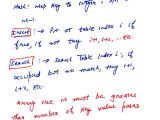 Hash: Map key to integer i, b/w
M-1.
Insert :→ Put at table index i if
free, if not try i+1, i+2, ...etc.
Search :→ Search table index i, if
occupied but no match, try i+1,
i+2, ... etc.
Array size M must be greater
than number of key value pairs